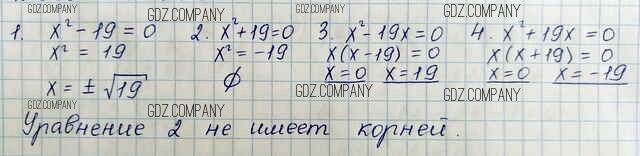 GDZ.COMPANY GDZ.COMPANY GDZ.COMPANY GDZ.COMPANY
1. x² - 19 = 0 2. x² + 19 = 0 3. x² - 19x = 0 4. x² + 19x = 0
x² = 19 x² = -19 x(x - 19) = 0 x(x + 19) = 0
x = ± √19 ∅ x = 0 x = 19 x = 0 x = -19
GDZ.COMPANY GDZ.COMPANY GDZ.COMPANY GDZ.COMPANY
Уравнение 2 не имеет корней.